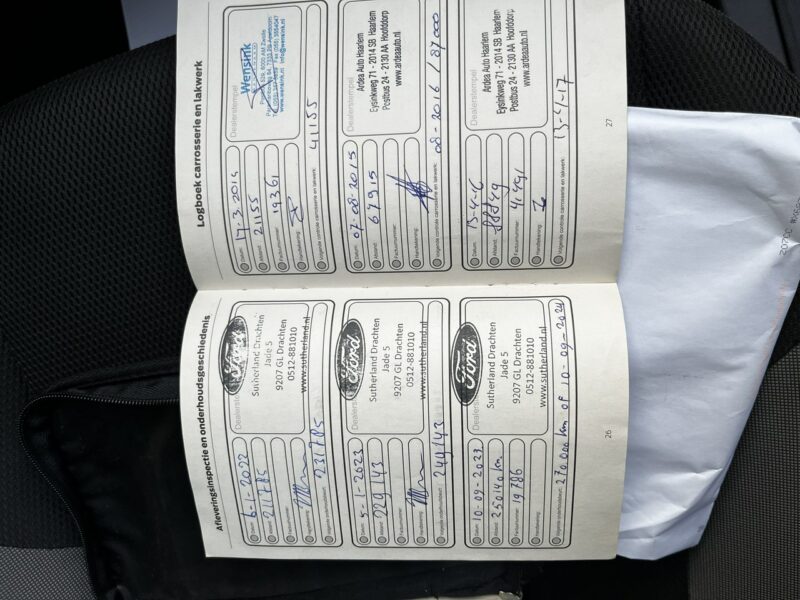 Afleveringsinspectie en onderhoudsgeschiedenis
Datum: 6-1-2022
Afstand: 211785
Factuurnummer:
Handtekening:
Volgende onderhoudsbeurt: 231785
Dealerstempel
Ford
Sutherland Drachten
Jade 5
9207 GL Drachten
0512-881010
www.sutherland.nl
Datum: 5-1-2023
Afstand: 229143
Factuurnummer:
Handtekening:
Volgende onderhoudsbeurt: 249143
Dealerstempel
Ford
Sutherland Drachten
Jade 5
9207 GL Drachten
0512-881010
www.sutherland.nl
Datum: 10-09-2023
Afstand: 250140 km
Factuurnummer: 19786
Handtekening:
Volgende onderhoudsbeurt: 270.000 km OF 10-09-2024
Dealerstempel
Ford
Sutherland Drachten
Jade 5
9207 GL Drachten
0512-881010
www.sutherland.nl
26
Logboek carrosserie en lakwerk
Datum: 17-3-2014
Afstand: 21155
Factuurnummer: 19361
Handtekening:
Volgende controle carrosserie en lakwerk: 41155
Dealerstempel
Wensink
www.wensink.nl info@wensink.nl
Datum: 07-08-2015
Afstand: 67915
Factuurnummer:
Handtekening:
Volgende controle carrosserie en lakwerk: 08-2016 / 87.000
Dealerstempel
Ardea Auto Haarlem
Eysinkweg 71 - 2014 SB Haarlem
Postbus 24 - 2130 AA Hoofddorp
www.ardeaauto.nl
Datum: 13-4-16
Afstand:
Factuurnummer:
Handtekening:
Volgende controle carrosserie en lakwerk: 13-4-17
Dealerstempel
Ardea Auto Haarlem
Eysinkweg 71 - 2014 SB Haarlem
Postbus 24 - 2130 AA Hoofddorp
www.ardeaauto.nl
27